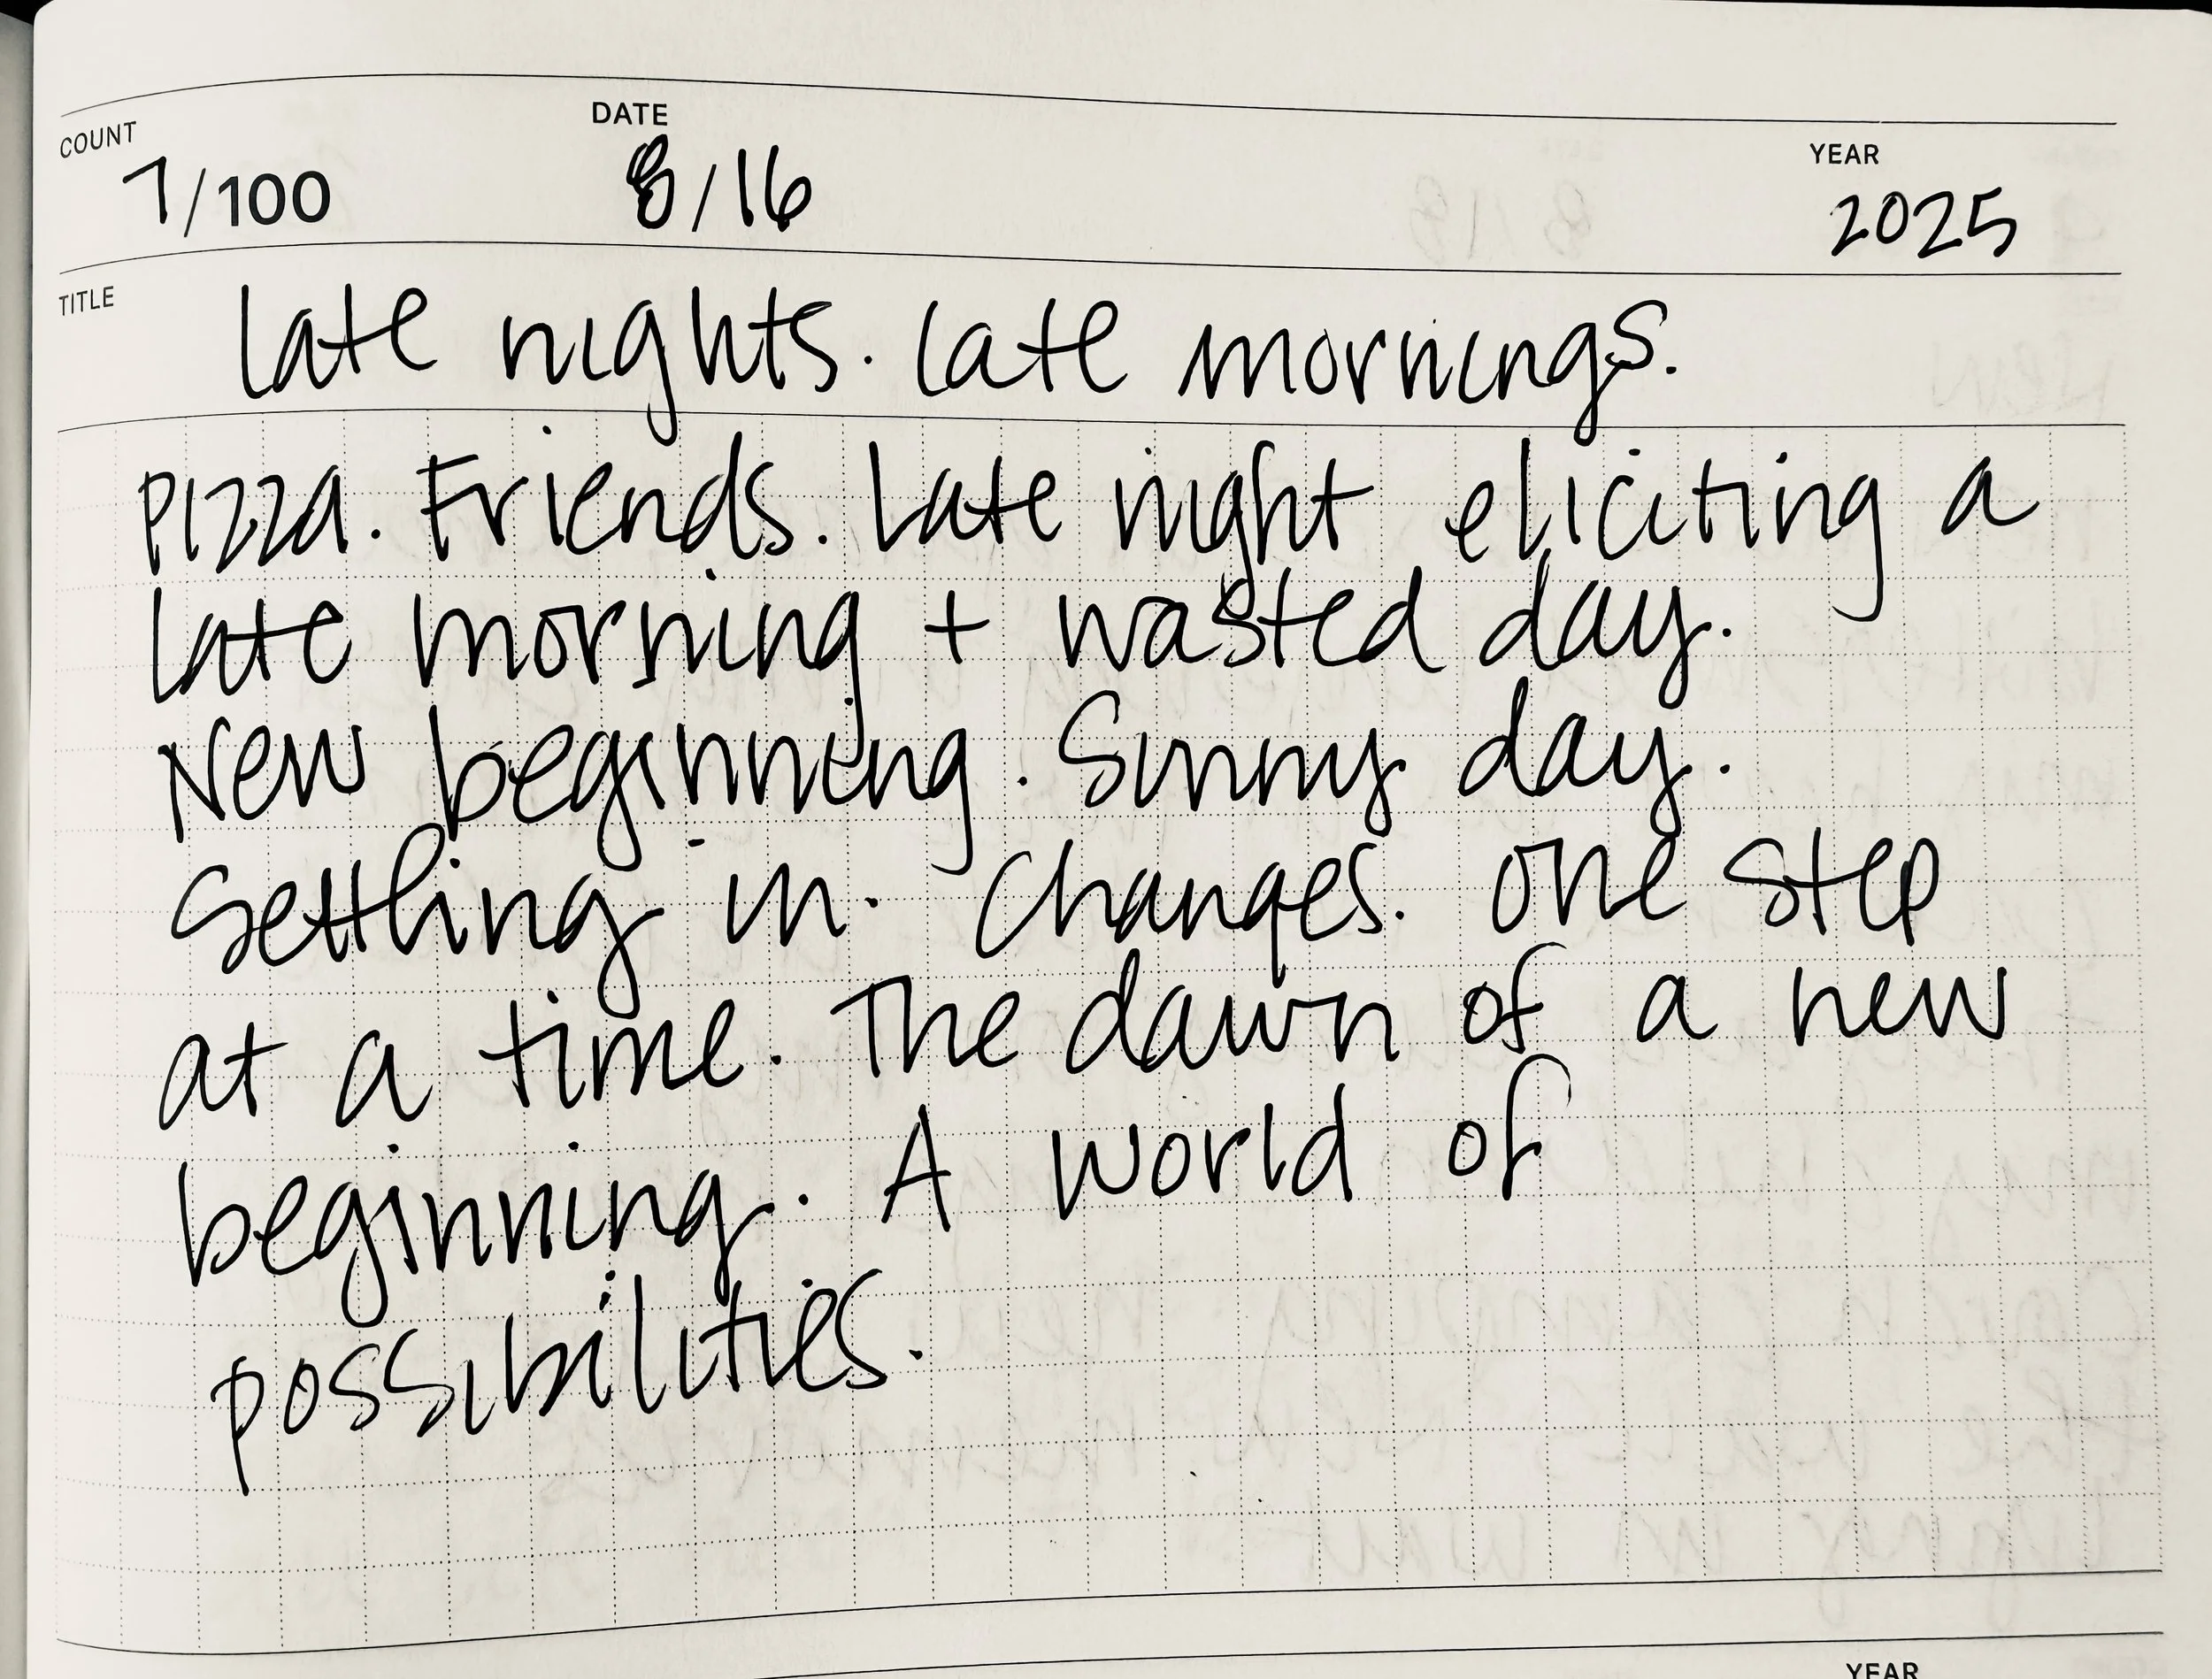 COUNT DATE YEAR
7/100 8/16 2025
TITLE late nights. late mornings.
Pizza. Friends. Late night eliciting a
late morning + wasted day.
New beginning. Sunny day.
Settling in. Changes. One step
at a time. The dawn of a new
beginning. A world of
possibilities.
YEAR